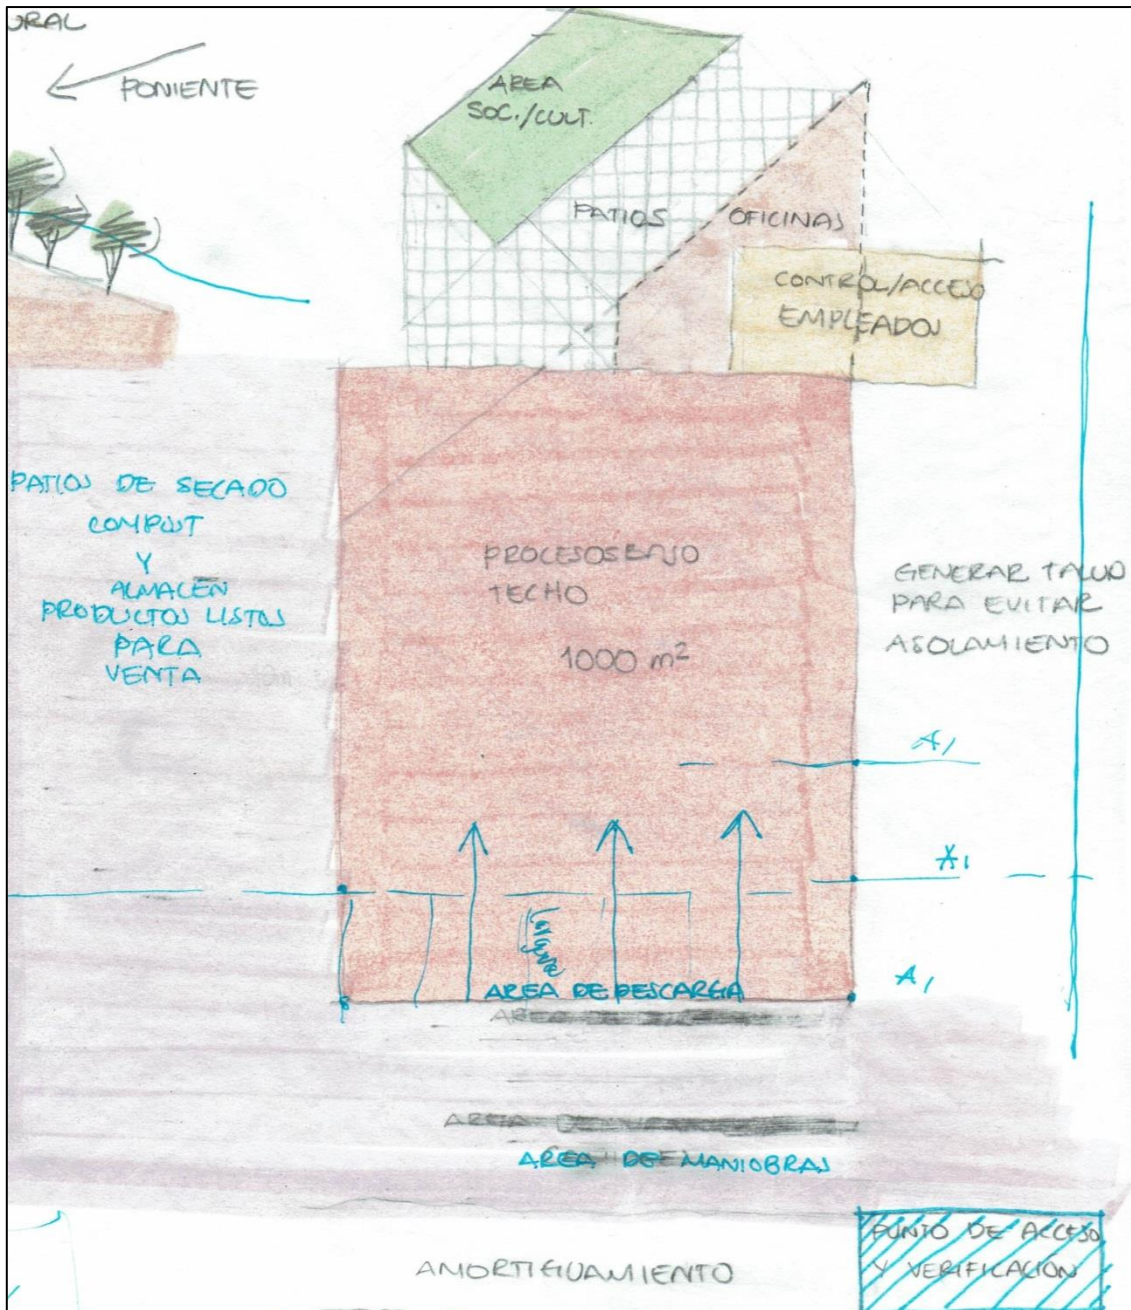 URAL
PONIENTE
AREA
SOC./CULT.
PATIOS
OFICINAS
CONTROL/ACCESO
EMPLEADOS
PATIOS DE SECADO
COMPOST
Y
ALMACEN
PRODUCTOS LISTOS
PARA
VENTA
PROCESOS BAJO
TECHO
1000 m²
GENERAR TALUD
PARA EVITAR
ASOLAMIENTO
A1
A1
A1
AREA DE DESCARGA
AREA
AREA
AREA DE MANIOBRAS
AMORTIGUAMIENTO
PUNTO DE ACCESO
Y VERIFICACIÓN